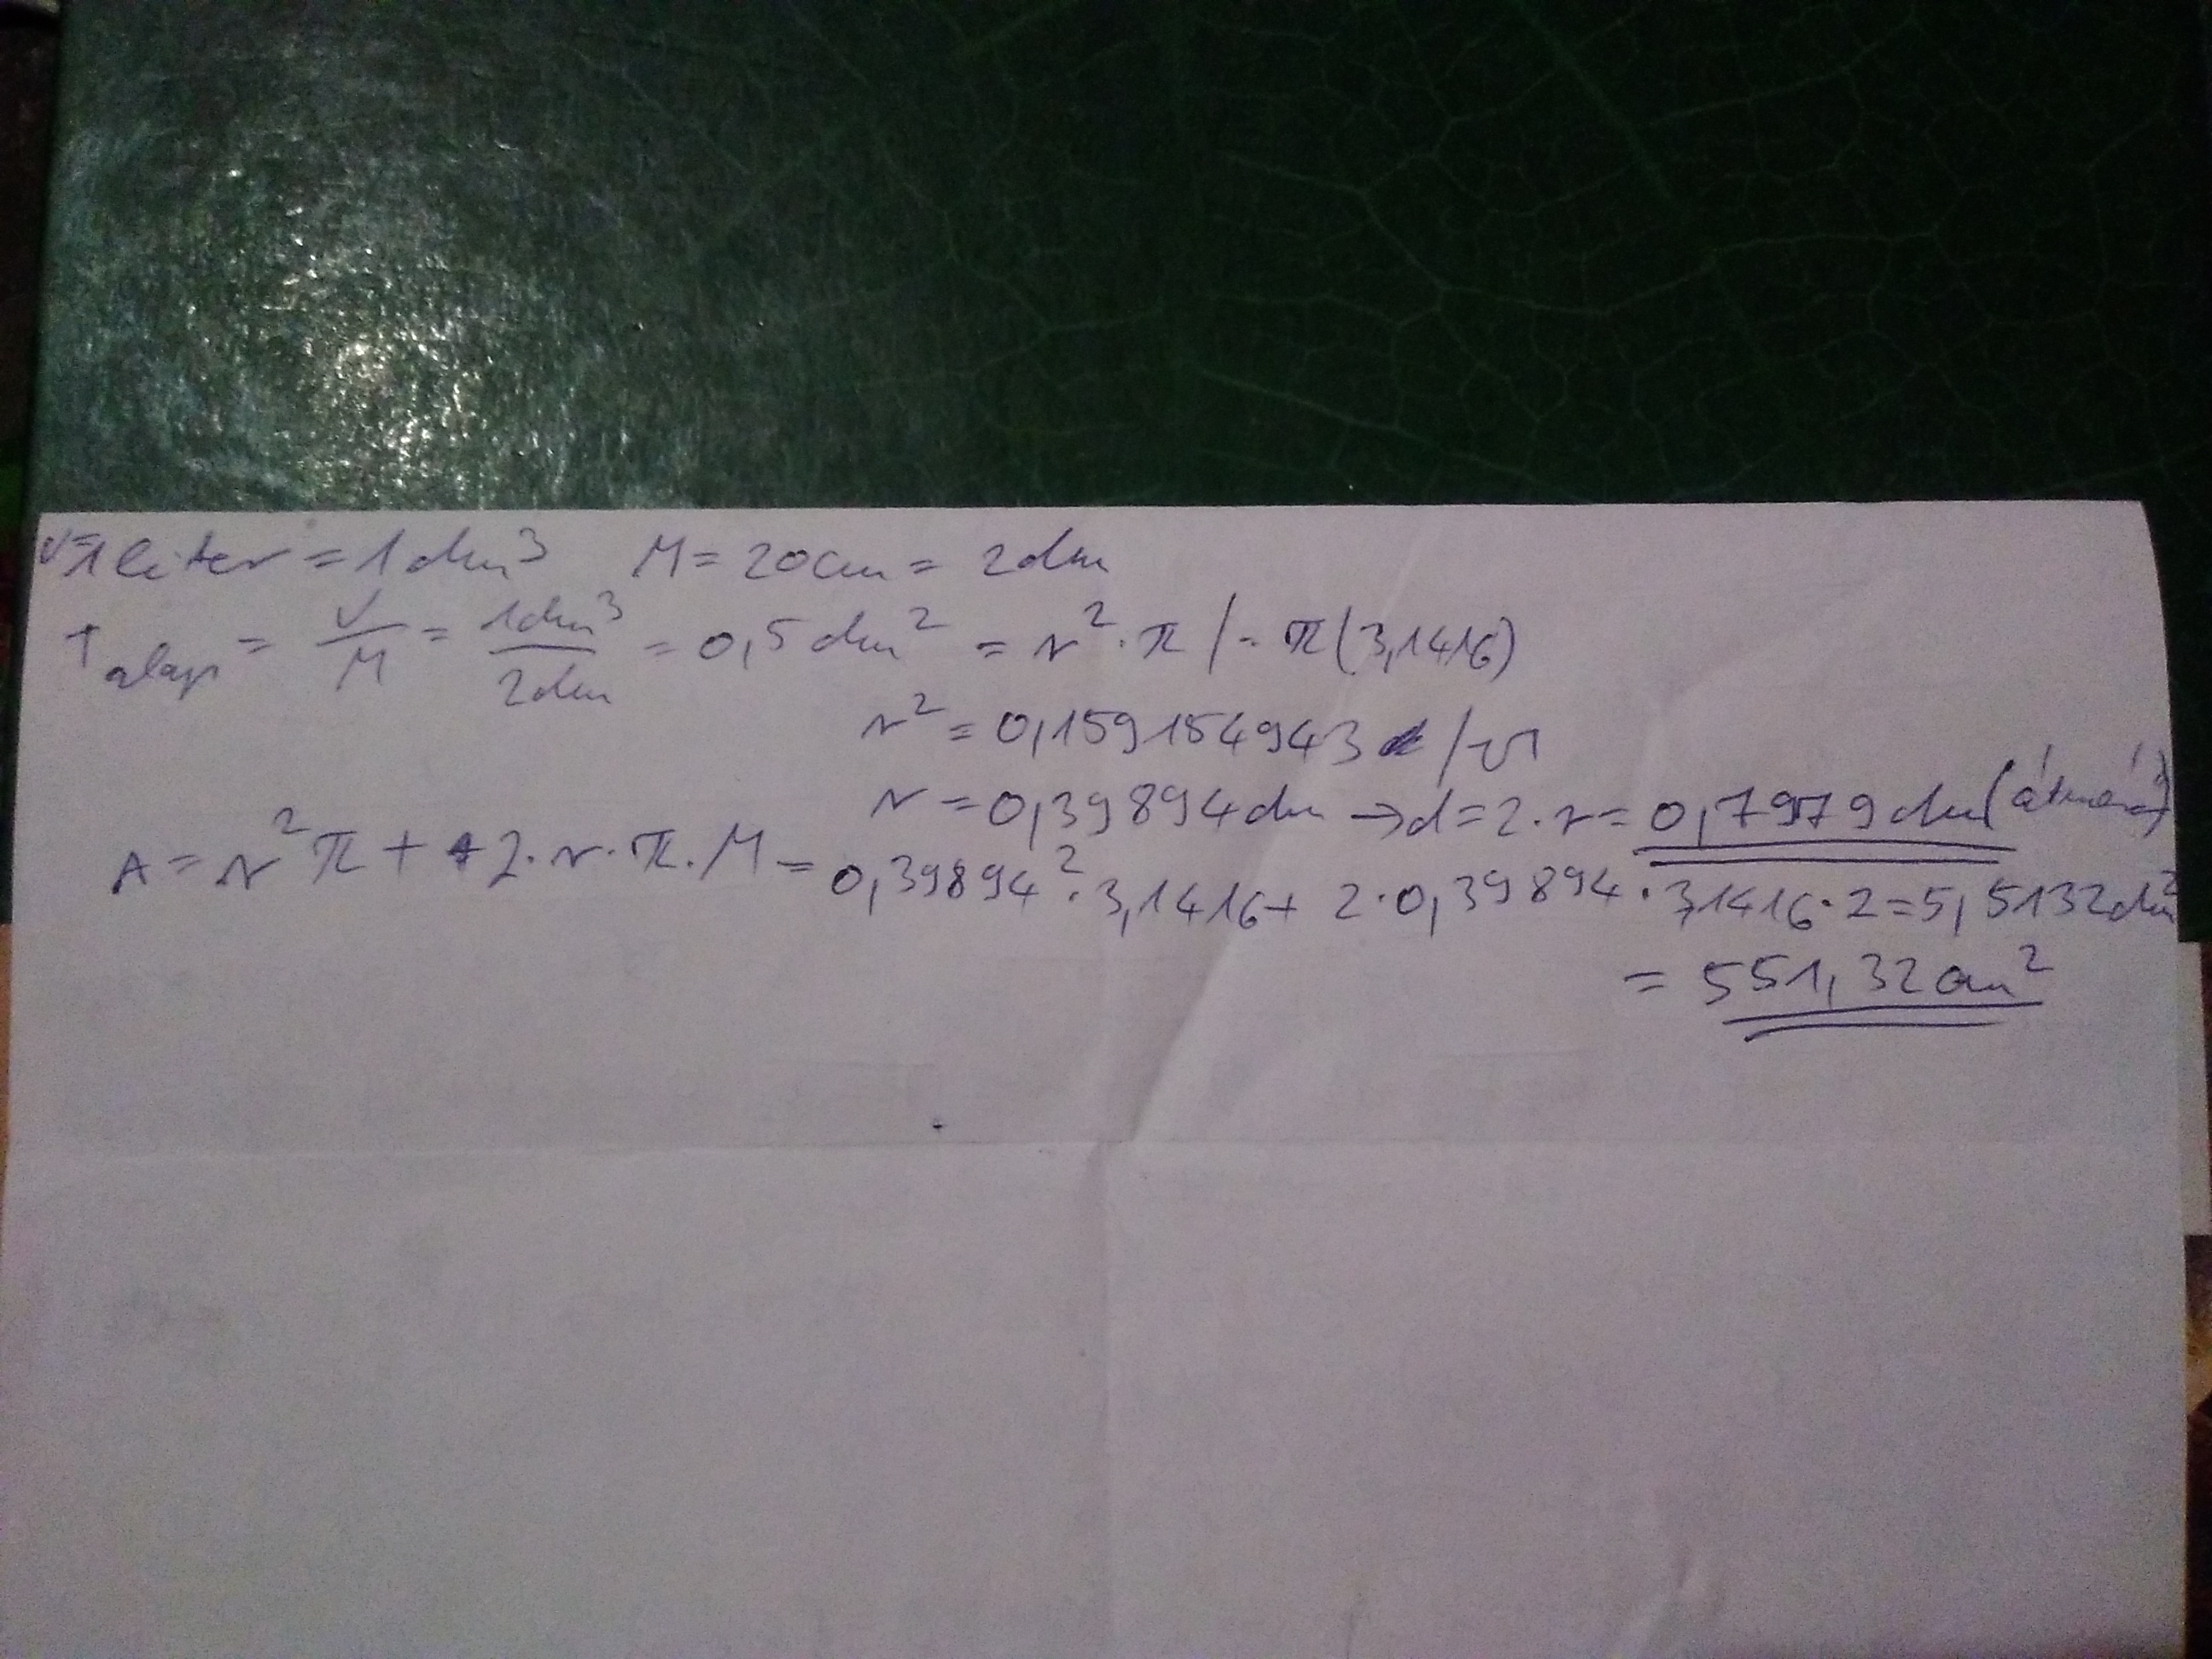 V=1 liter = 1 dm³ M = 20cm = 2dm
T alap = V/M = 1dm³/2dm = 0,5 dm² = r² · π / : π (3,1416)
r² = 0,159154943 /√
r = 0,39894 dm → d = 2 · r = 0,7979 dm (átmérő)
A = r² π + 2 · r · π · M = 0,39894² · 3,1416 + 2 · 0,39894 · 3,1416 · 2 = 5,5132 dm²
= 551,32 cm²